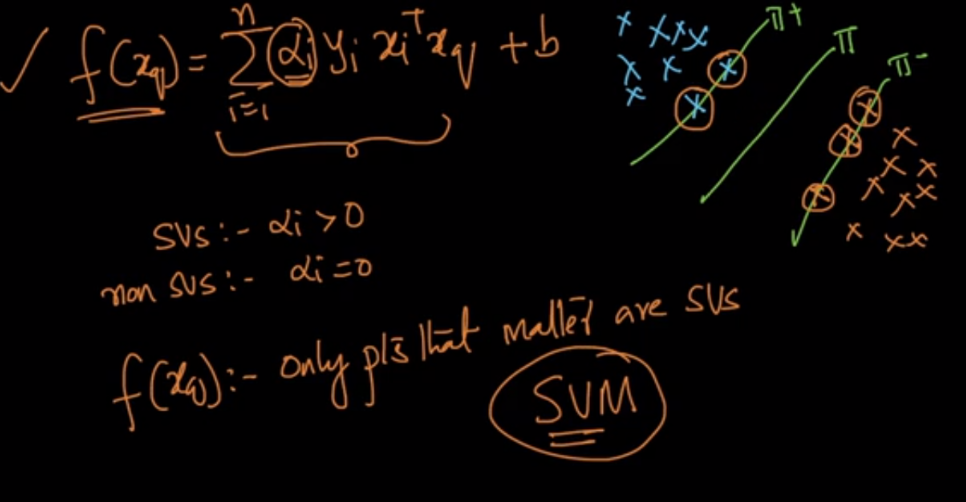 ✓ f(xq) = Σ αi yi xiᵀxq + b
n
i=1
π+
π
π-
SVs :- αi > 0
non SVs :- αi = 0
f(xq) :- only pts that matter are SVs
SVM